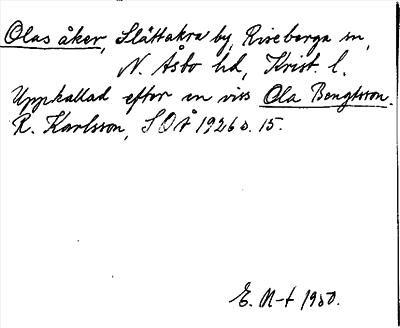 Olas åker, Slättakra by, Riseberga sn,
N. Åsbo hd, Krist. l.
Uppkallad efter en viss Ola Bengtsson.
R. Karlsson, SOÅ 1926 s. 15.
E. N-t 1950.